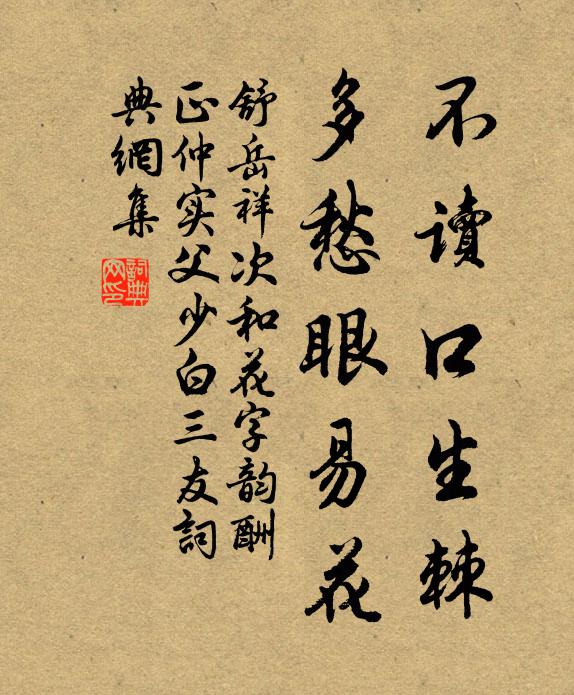 不讀口生棘
多愁眼易花
舒岳祥次和花字韵酬
正仲实父少白三友詞
典網集
詞典
网印